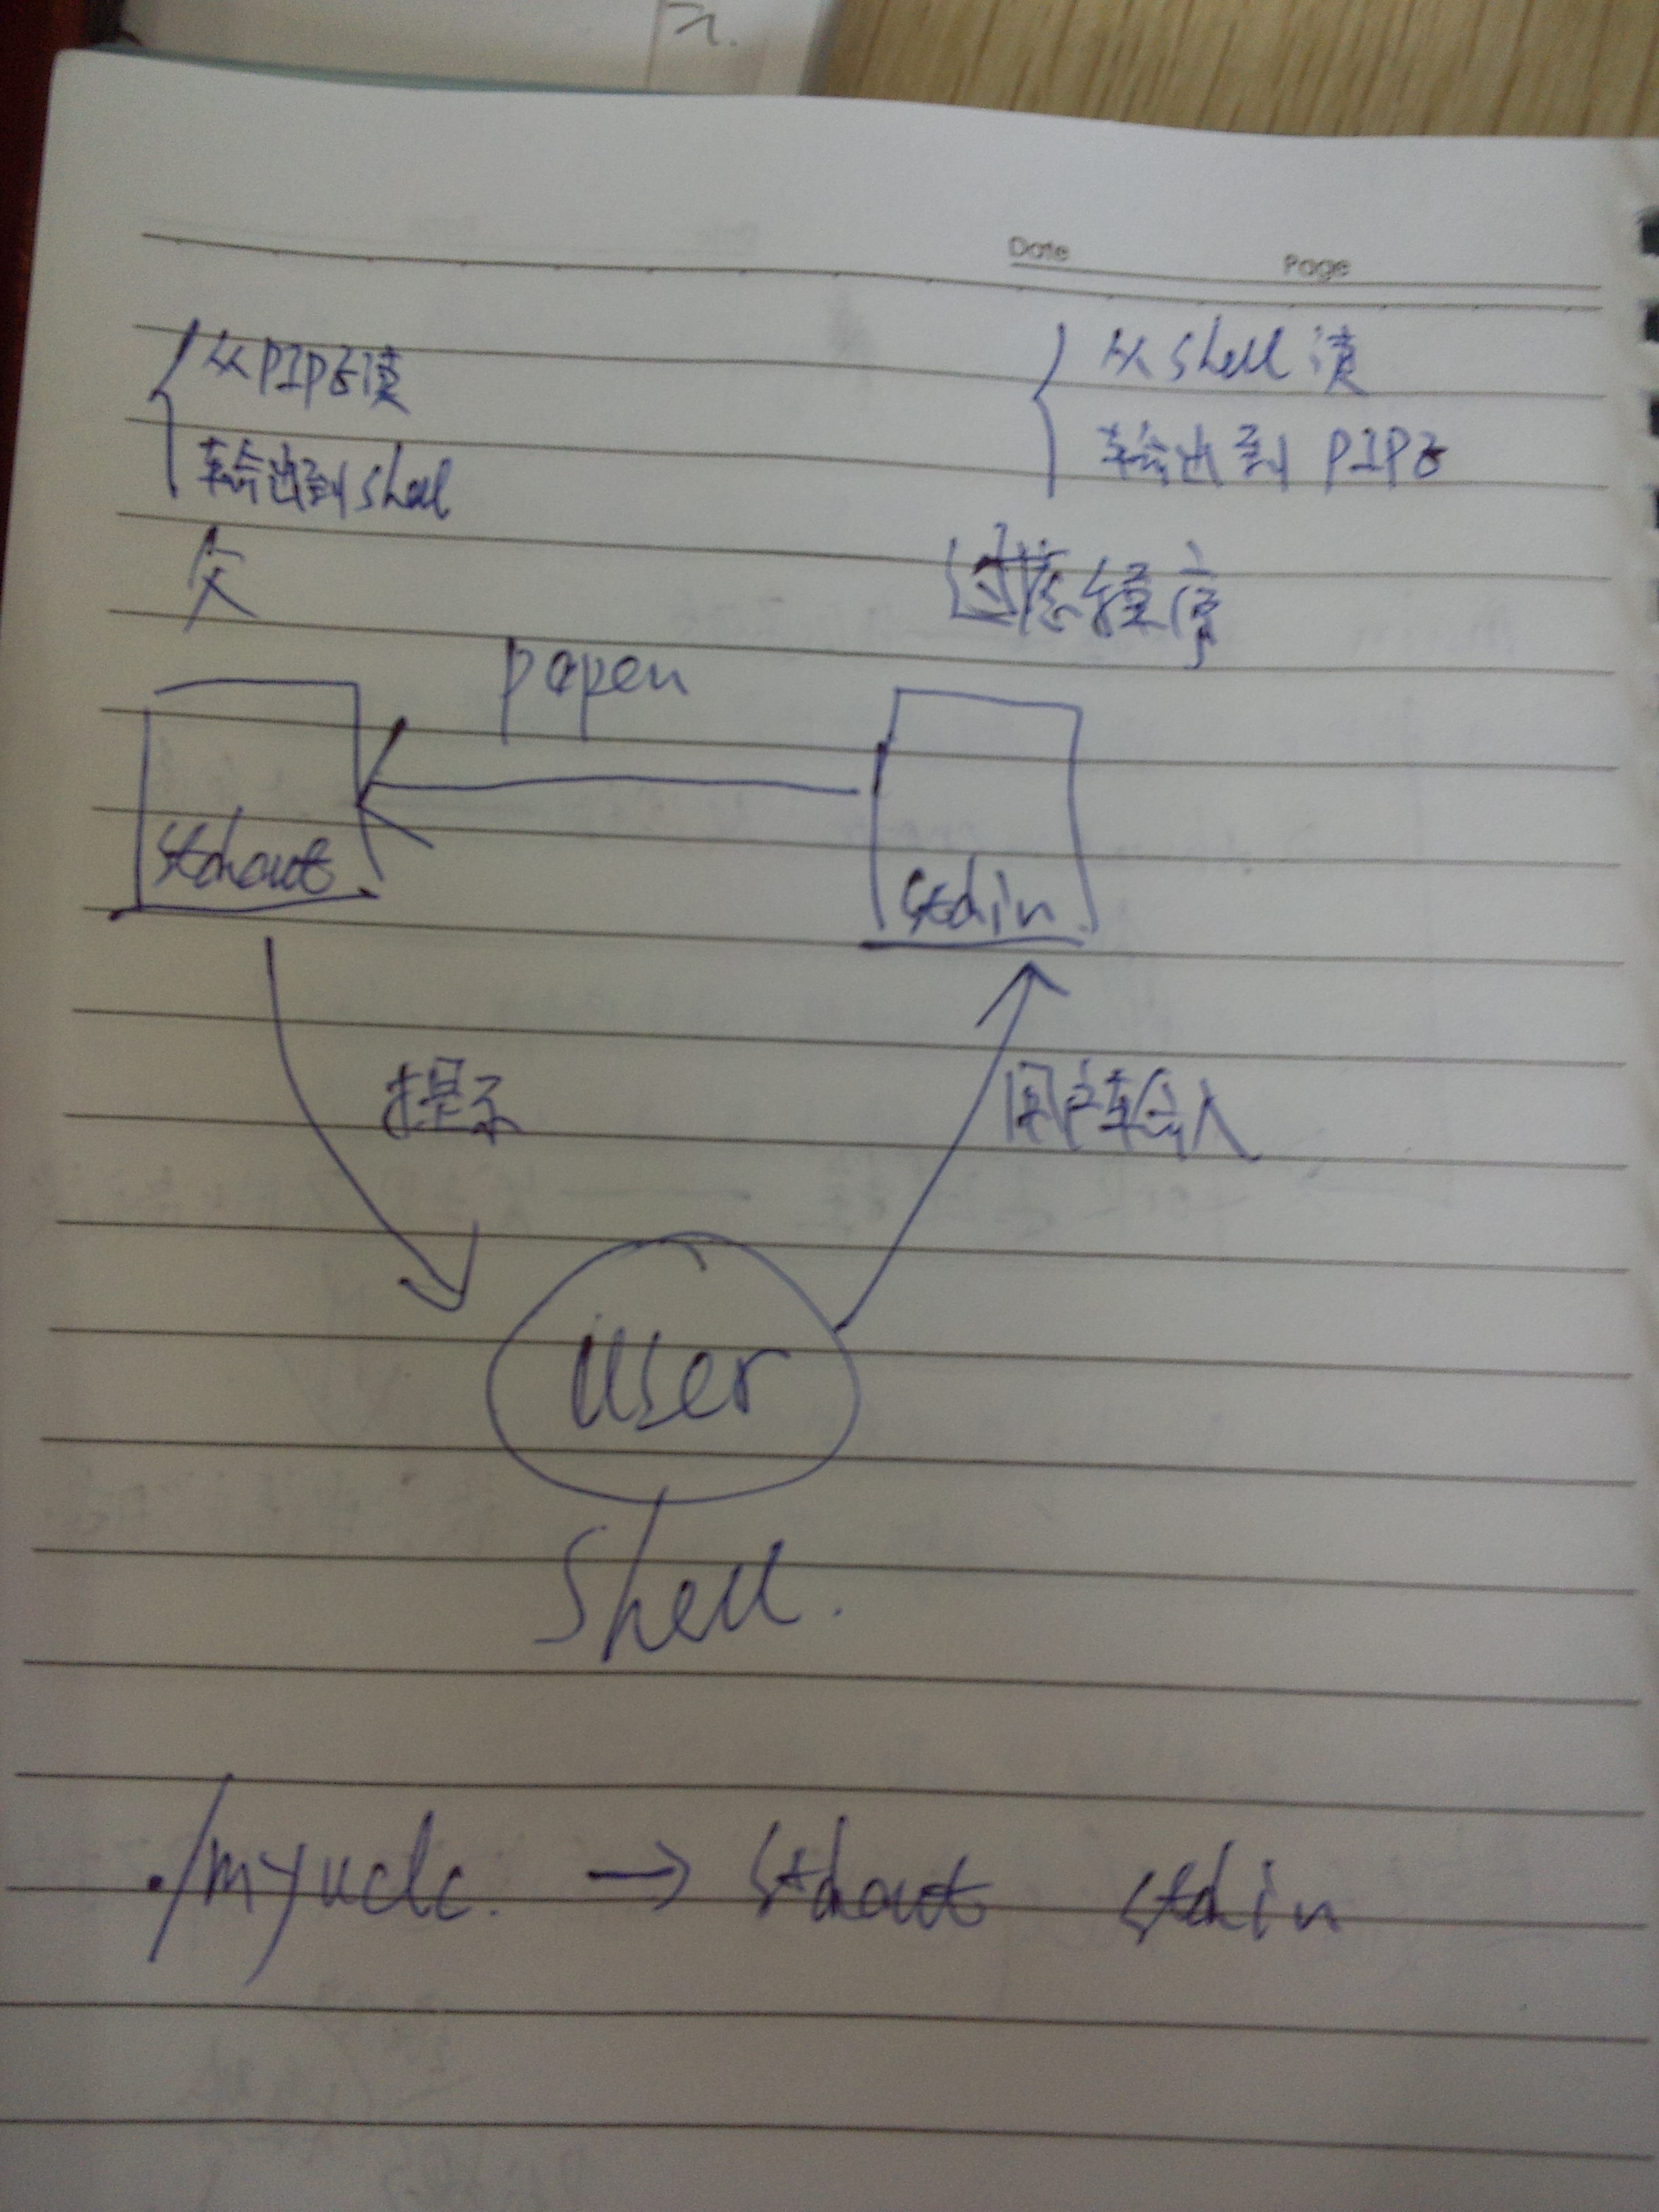 Date Page
从PIPE读
输出到shell
从shell读
输出到 PIPE
父
过滤程序
popen
stdout
stdin
提示
用户输入
user
shell.
./myuclc. → stdout stdin